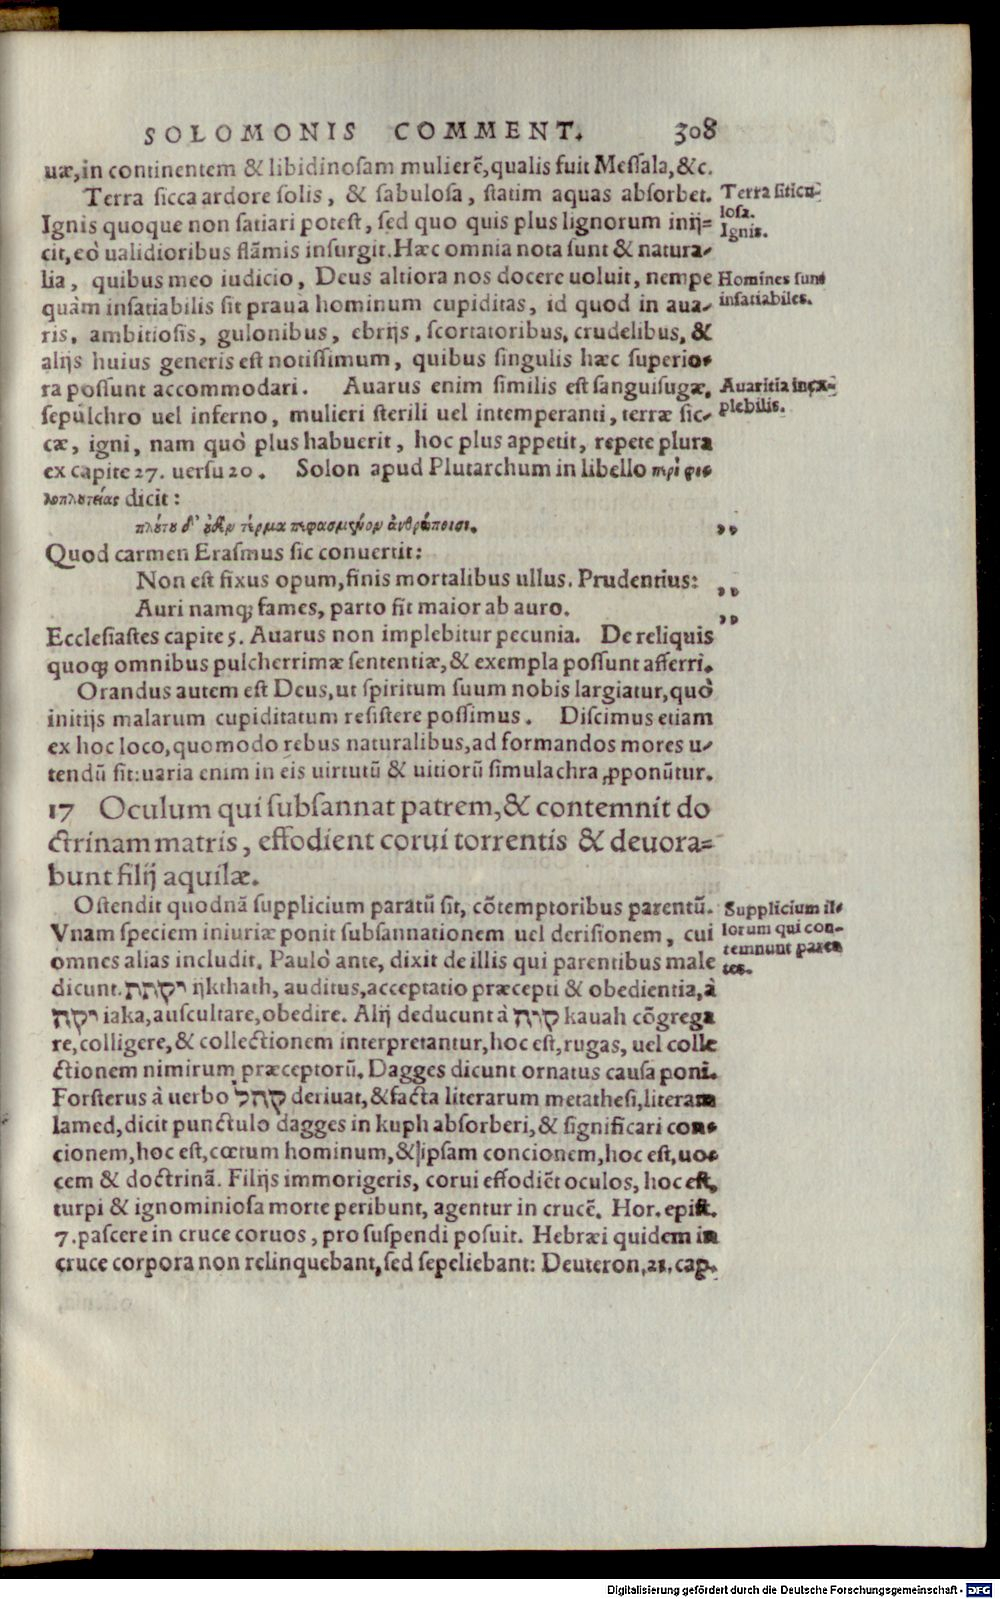 SOLOMONIS COMMENT. 308
uæ, in continentem & libidinosam mulierē, qualis fuit Messala, &c.
Terra sicca ardore solis, & sabulosa, statim aquas absorbet.
Terra siticu-
losa.
Ignis quoque non satiari potest, sed quo quis plus lignorum inij=
Ignis.
cit, eò ualidioribus flāmis insurgit. Hæc omnia nota sunt & natura-
lia, quibus meo iudicio, Deus altiora nos docere uoluit, nempe
Homines sunt
insatiabiles.
quàm insatiabilis sit praua hominum cupiditas, id quod in aua-
ris, ambitiosis, gulonibus, ebrijs, scortatoribus, crudelibus, &
alijs huius generis est notissimum, quibus singulis hæc superio-
ra possunt accommodari. Auarus enim similis est sanguisugæ,
Auaritia inex-
plebilis.
sepulchro uel inferno, mulieri sterili uel intemperanti, terræ sic-
cæ, igni, nam quò plus habuerit, hoc plus appetit, repete plura
ex capite 27. uersu 20. Solon apud Plutarchum in libello περὶ φι-
λοπλουτείας dicit:
πλούτου δ' οὐδὲν τέρμα πεφασμένον ἀνθρώποισι. ,,
Quod carmen Erasmus sic conuertit:
Non est fixus opum, finis mortalibus ullus. Prudentius: ,,
Auri namq́; fames, parto fit maior ab auro. ,,
Ecclesiastes capite 5. Auarus non implebitur pecunia. De reliquis
quoq; omnibus pulcherrimæ sententiæ, & exempla possunt afferri.
Orandus autem est Deus, ut spiritum suum nobis largiatur, quò
initijs malarum cupiditatum resistere possimus. Discimus etiam
ex hoc loco, quomodo rebus naturalibus, ad formandos mores u-
tendū sit: uaria enim in eis uirtutū & uitiorū simulachra ꝓponūtur.
17 Oculum qui subsannat patrem, & contemnit do
ctrinam matris, effodient corui torrentis & deuora=
bunt filij aquilæ.
Ostendit quodnā supplicium paratū sit, cōtemptoribus parentū.
Supplicium il-
lorum qui con-
temnunt paren
tes.
Vnam speciem iniuriæ ponit subsannationem uel derisionem, cui
omnes alias includit. Paulò ante, dixit de illis qui parentibus male
dicunt. יקהת ijkthath, auditus, acceptatio præcepti & obedientia, à
יקה iaka, auscultare, obedire. Alij deducunt à קוה kauah cōgrega
re, colligere, & collectionem interpretantur, hoc est, rugas, uel colle
ctionem nimirum præceptorū. Dagges dicunt ornatus causa poni.
Forsterus à uerbo קהל deriuat, & facta literarum metathesi, literam
lamed, dicit punctulo dagges in kuph absorberi, & significari con-
cionem, hoc est, cœtum hominum, & ipsam concionem, hoc est, uo-
cem & doctrinā. Filijs immorigeris, corui effodiēt oculos, hoc est,
turpi & ignominiosa morte peribunt, agentur in crucē. Hor. epist.
7. pascere in cruce coruos, pro suspendi posuit. Hebræi quidem in
cruce corpora non relinquebant, sed sepeliebant: Deuteron, 21. cap.
Digitalisierung gefördert durch die Deutsche Forschungsgemeinschaft - DFG